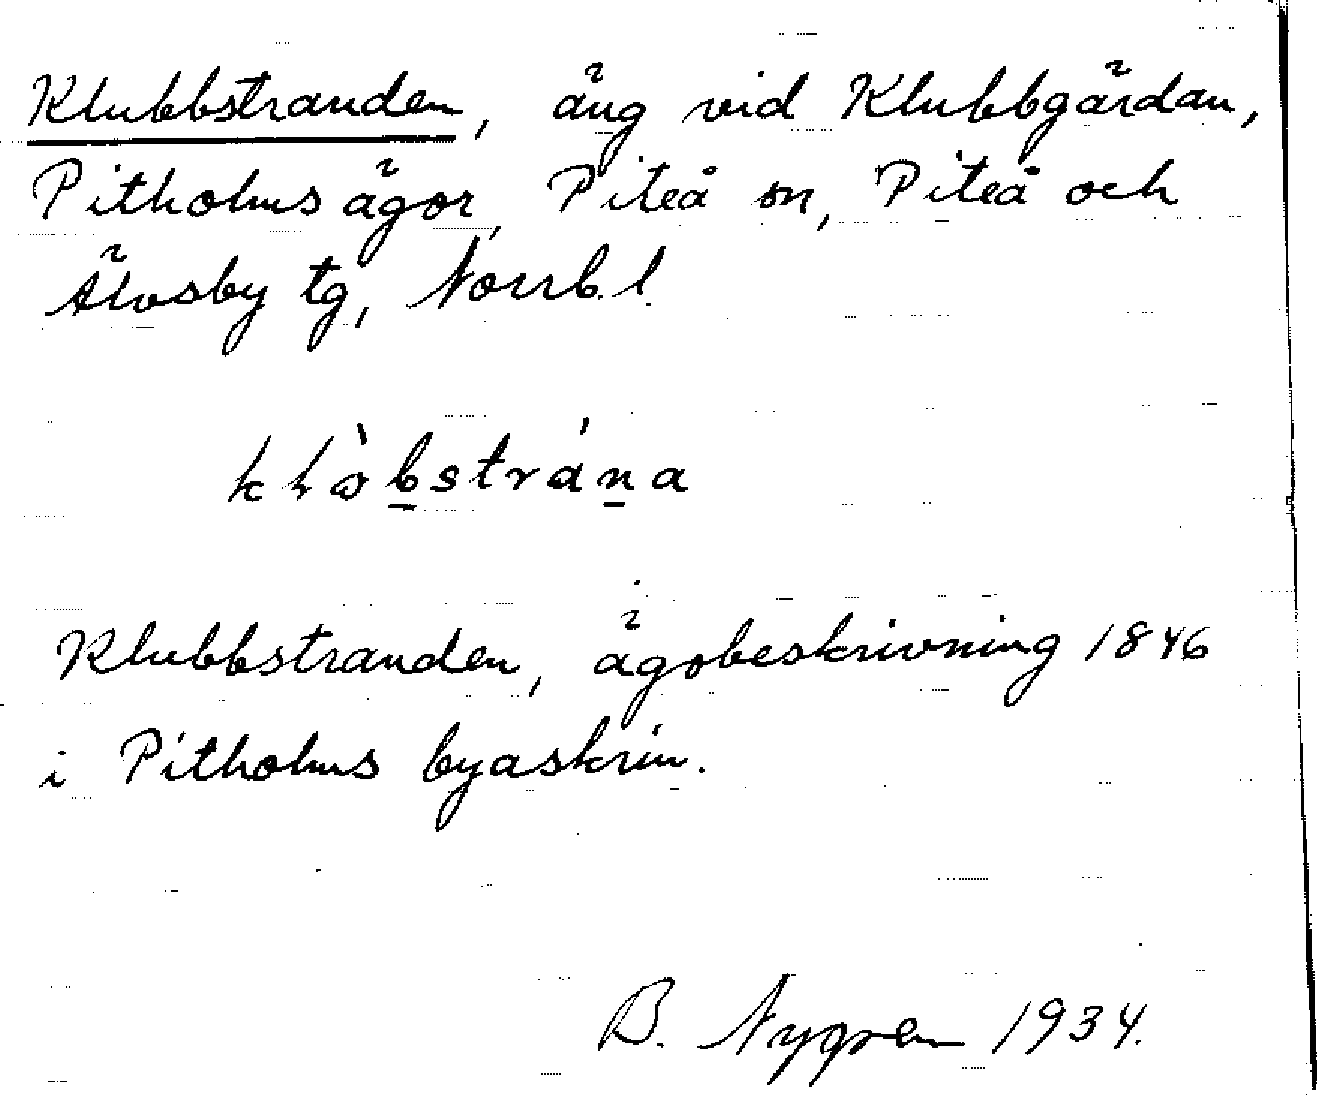 Klubbstranden, äng vid Klubbgärdan,
Pitholms ägor, Piteå sn, Piteå och
Älvsby tg, Norrb. l.
Klubbstranden, ägobeskrivning 1846
i Pitholms byaskrin.
B. Nygren 1934.